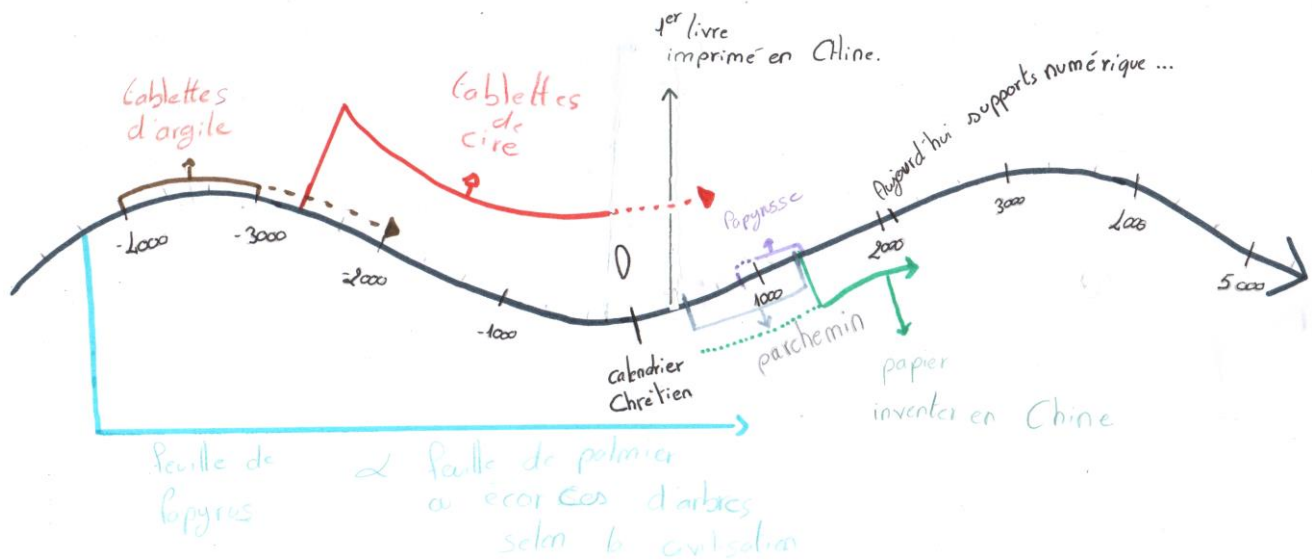 1er livre
imprimé en Chine.
tablettes
d'argile
tablettes
de
cire
Aujourd'hui supports numérique...
Papyrusse
-4000
-3000
-2000
-1000
0
1000
2000
3000
4000
5000
calendrier
Chrétien
parchemin
papier
inventer en Chine
feuille de
Papyrus
feuille de palmier
ou écorces d'arbres
selon la civilisation